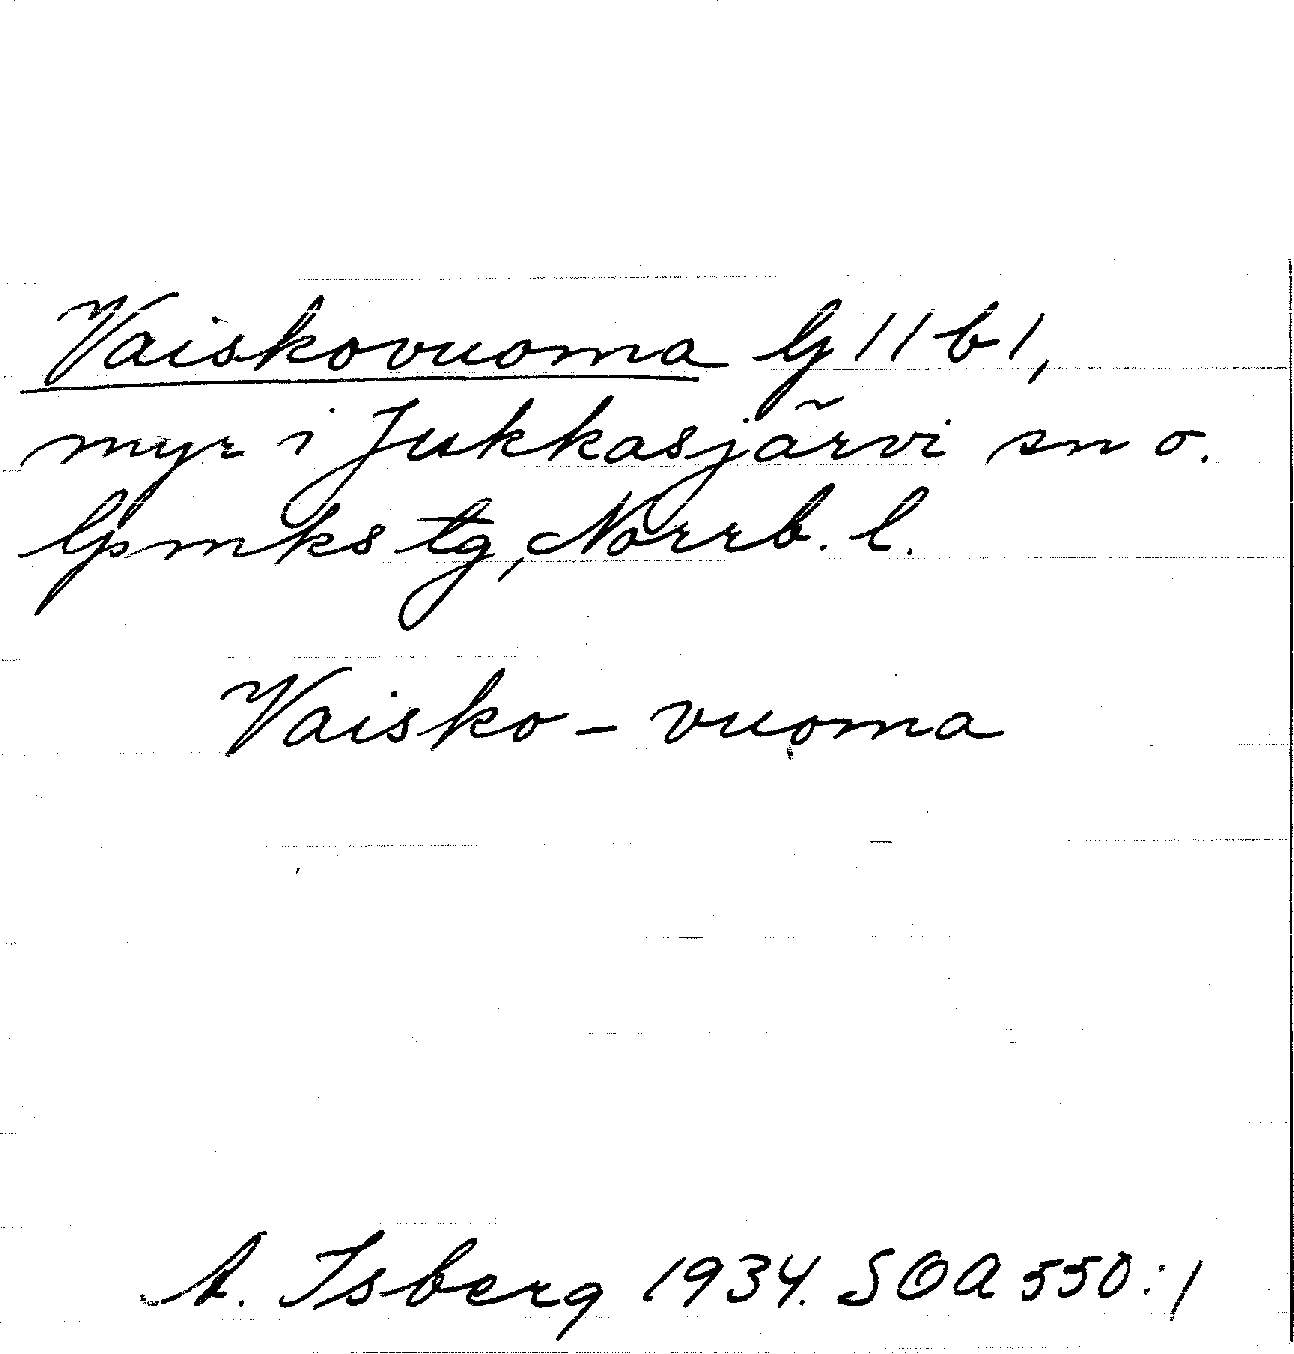 Vaiskovuoma lj 11 b 1,
myr i Jukkasjärvi sn o.
lpmks tg, Norrb. l.
Vaisko - vuoma
A. Isberg 1934. SOA 550:1